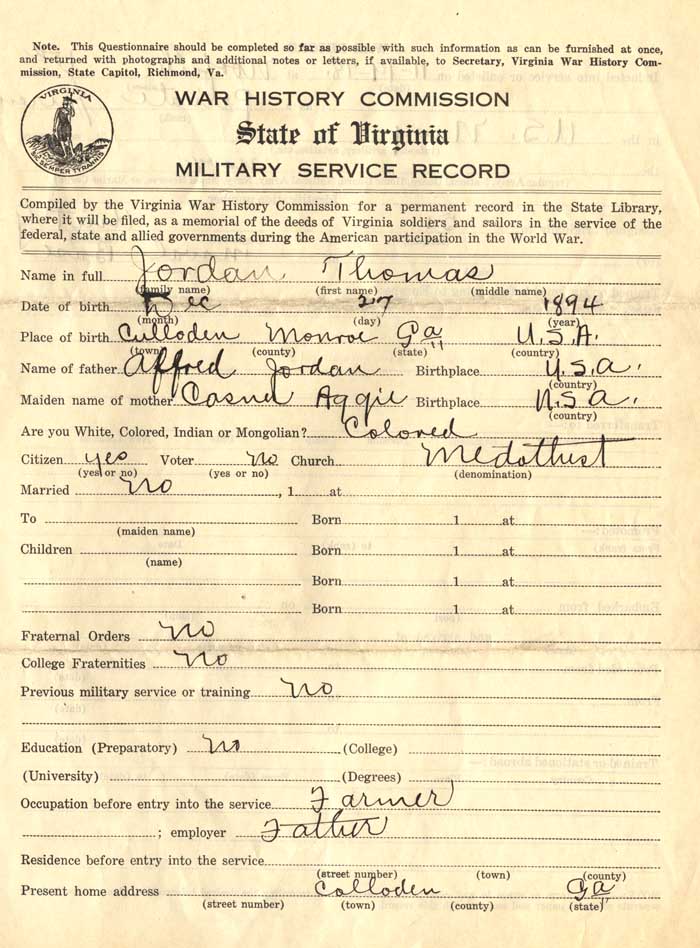 Note. This Questionnaire should be completed so far as possible with such information as can be furnished at once,
and returned with photographs and additional notes or letters, if available, to Secretary, Virginia War History Com-
mission, State Capitol, Richmond, Va.
VIRGINIA
SIC SEMPER TYRANNIS
WAR HISTORY COMMISSION
State of Virginia
MILITARY SERVICE RECORD
Compiled by the Virginia War History Commission for a permanent record in the State Library,
where it will be filed, as a memorial of the deeds of Virginia soldiers and sailors in the service of the
federal, state and allied governments during the American participation in the World War.
Name in full Jordan Thomas
(family name) (first name) (middle name)
Date of birth Dec 27 1894
(month) (day) (year)
Place of birth Culloden Monroe Ga U.S.A.
(town) (county) (state) (country)
Name of father Alfred Jordan Birthplace U.S.A.
(country)
Maiden name of mother Aggie Birthplace U.S.A.
(country)
Are you White, Colored, Indian or Mongolian? Colored
Citizen yes Voter no Church Medothust
(yes or no) (yes or no) (denomination)
Married No , 1 at
To Born 1 at
(maiden name)
Children Born 1 at
(name)
Born 1 at
Born 1 at
Fraternal Orders No
College Fraternities No
Previous military service or training No
Education (Preparatory) No (College)
(University) (Degrees)
Occupation before entry into the service Farmer
; employer Father
Residence before entry into the service
(street number) (town) (county)
Present home address Colloden Ga
(street number) (town) (county) (state)